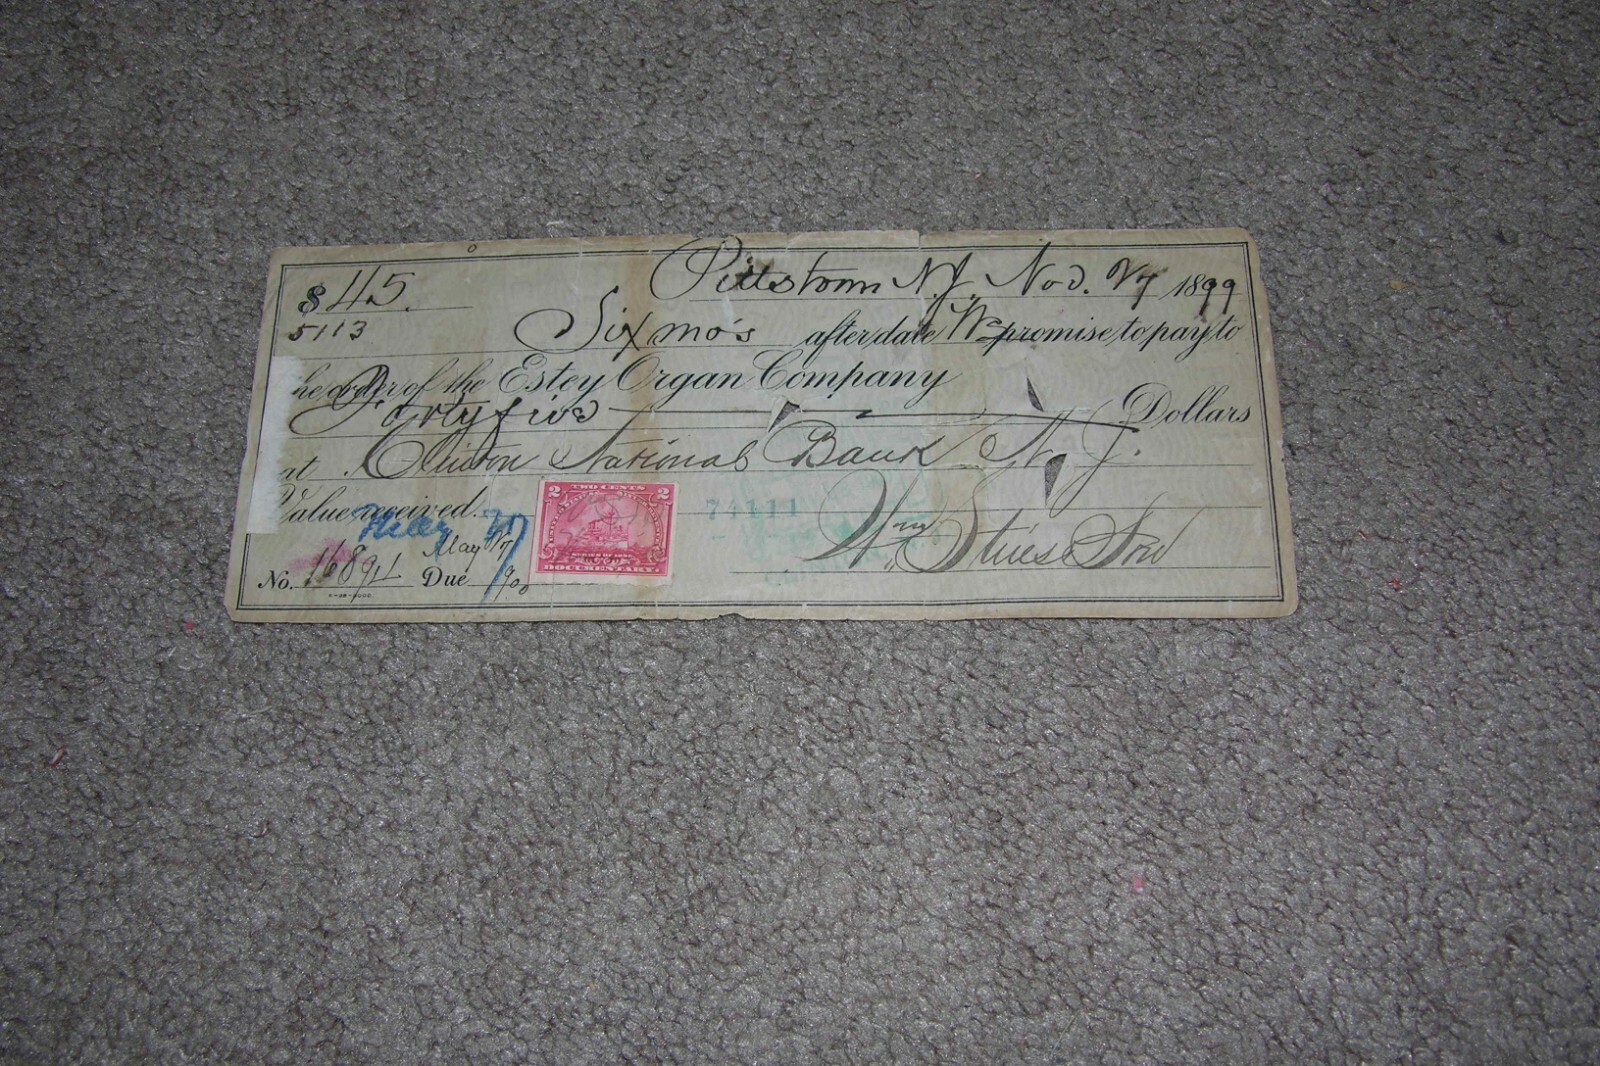 $ 45. Pittstown N.J. Nov. 27 1899
5113 Six mo's after date We promise to pay to
he order of the Estey Organ Company
Forty five Dollars
at Clinton National Bank N. J.
Value received.
74111
Wm Stires Son
May 27
No. 16894 Due /00
2 TWO CENTS 2
DOCUMENTARY